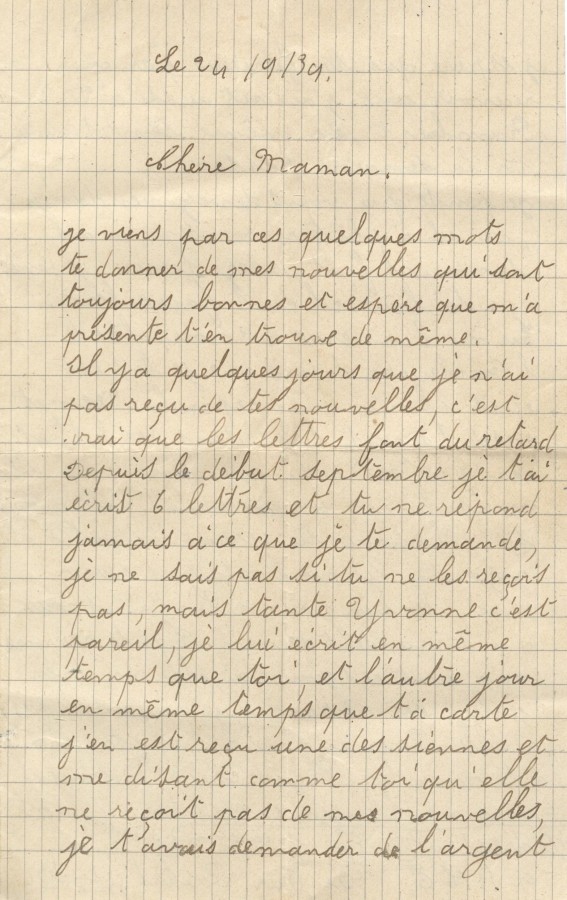 Le 24/9/39.
Chère Maman.
je viens par ces quelques mots
te donner de mes nouvelles qui sont
toujours bonnes et espère que m'a
présente t'en trouve de même.
Il y a quelques jours que je n'ai
pas reçu de tes nouvelles, c'est
vrai que les lettres font du retard
Depuis le début septembre je t'ai
écrit 6 lettres et tu ne répond
jamais à ce que je te demande,
je ne sais pas si tu ne les reçois
pas, mais tante Yvonne c'est
pareil, je lui écrit en même
temps que toi, et l'autre jour
en même temps que ta carte
j'en est reçu une des siennes et
me disant comme toi qu'elle
ne reçoit pas de mes nouvelles,
je t'avais demander de l'argent